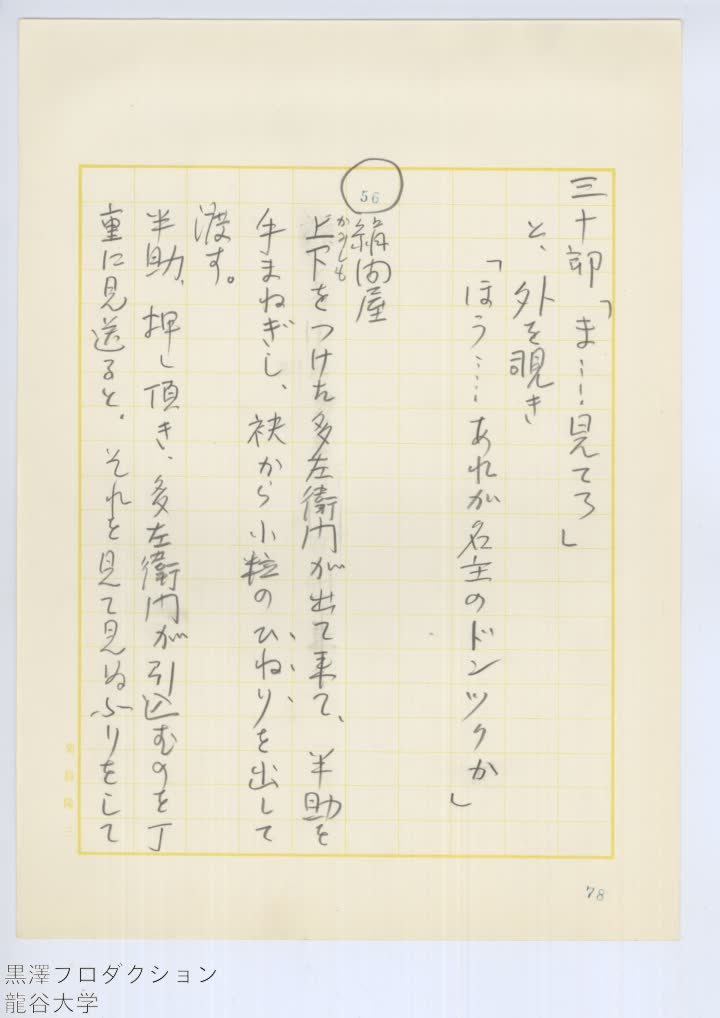 三十郎「ま……見てろ」
と、外を覗き
「ほう……あれが名主のドンツクか」
56
絹問屋
上下をつけた多左衛門が出て来て、半助を
かみしも
手まねぎし、袂から小粒のひねりを出して
渡す。
半助、押し頂き、多左衛門が引込むのを丁
重に見送ると、それを見て見ぬふりをして
78
黒澤プロダクション
龍谷大学